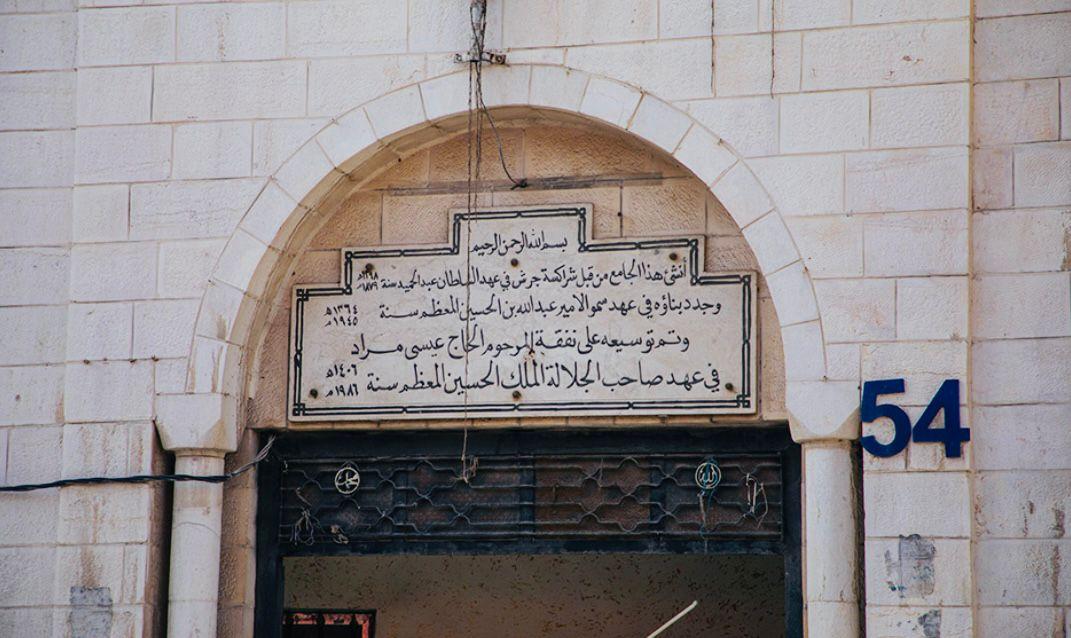 بسم الله الرحمن الرحيم
أنشئ هذا الجامع من قبل شراكسة جرش في عهد السلطان عبد الحميد سنة ١٢٩٨هـ ١٨٧٩م
وجدد بناؤه في عهد سمو الامير عبدالله بن الحسين المعظم سنة ١٣٦٤هـ ١٩٤٥م
وتم توسيعه على نفقة المرحوم الحاج عيسى مراد
في عهد صاحب الجلالة الملك الحسين المعظم سنة ١٤٠٦هـ ١٩٨٦م
54
محمد
الله